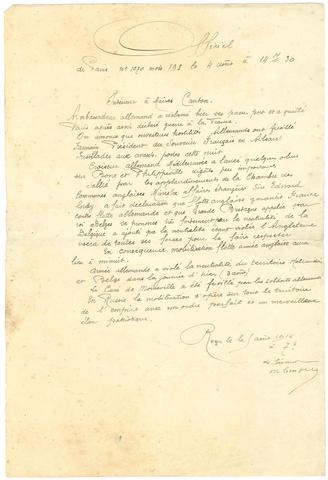 Officiel
de Paris nº 1070 mots 193 le 4 août à 14 h 30
Intérieur à Maires Canton.
Ambassadeur allemand a réclamé hier ses passeports et a quitté
Paris après avoir déclaré guerre à la France
On annonce que ouvertures hostilités Allemands ont fusillé
Samain Président du Souvenir Français en Alsace
Fusillades aux avant-postes cette nuit
Croiseur allemand Méditerranée a lancé quelques obus
sur Bône et Philippeville dégâts peu importants
Salué par les applaudissements de la Chambre des
Communes anglaises Ministre affaires étrangères Sir Edward
Grey a fait déclaration que flotte anglaise garantit France
contre flotte allemande et que Grande Bretagne appelée par
roi Belges se prononce très fortement sur la neutralité de la
Belgique a ajouté que la neutralité étant violée l'Angleterre
usera de toutes ses forces pour la faire respecter
En conséquence mobilisation flotte armée anglaise aura
lieu à minuit.
Armée allemande a violé la neutralité du territoire Hollandais
et Belge dans la journée d'hier (3 août)
Le Curé de Moineville a été fusillé par les soldats allemands
En Russie la mobilisation s'opère sur tout le territoire
de l'empire avec un ordre parfait et un merveilleux
élan patriotique.
Reçu le 5 août 1914
à 7 h